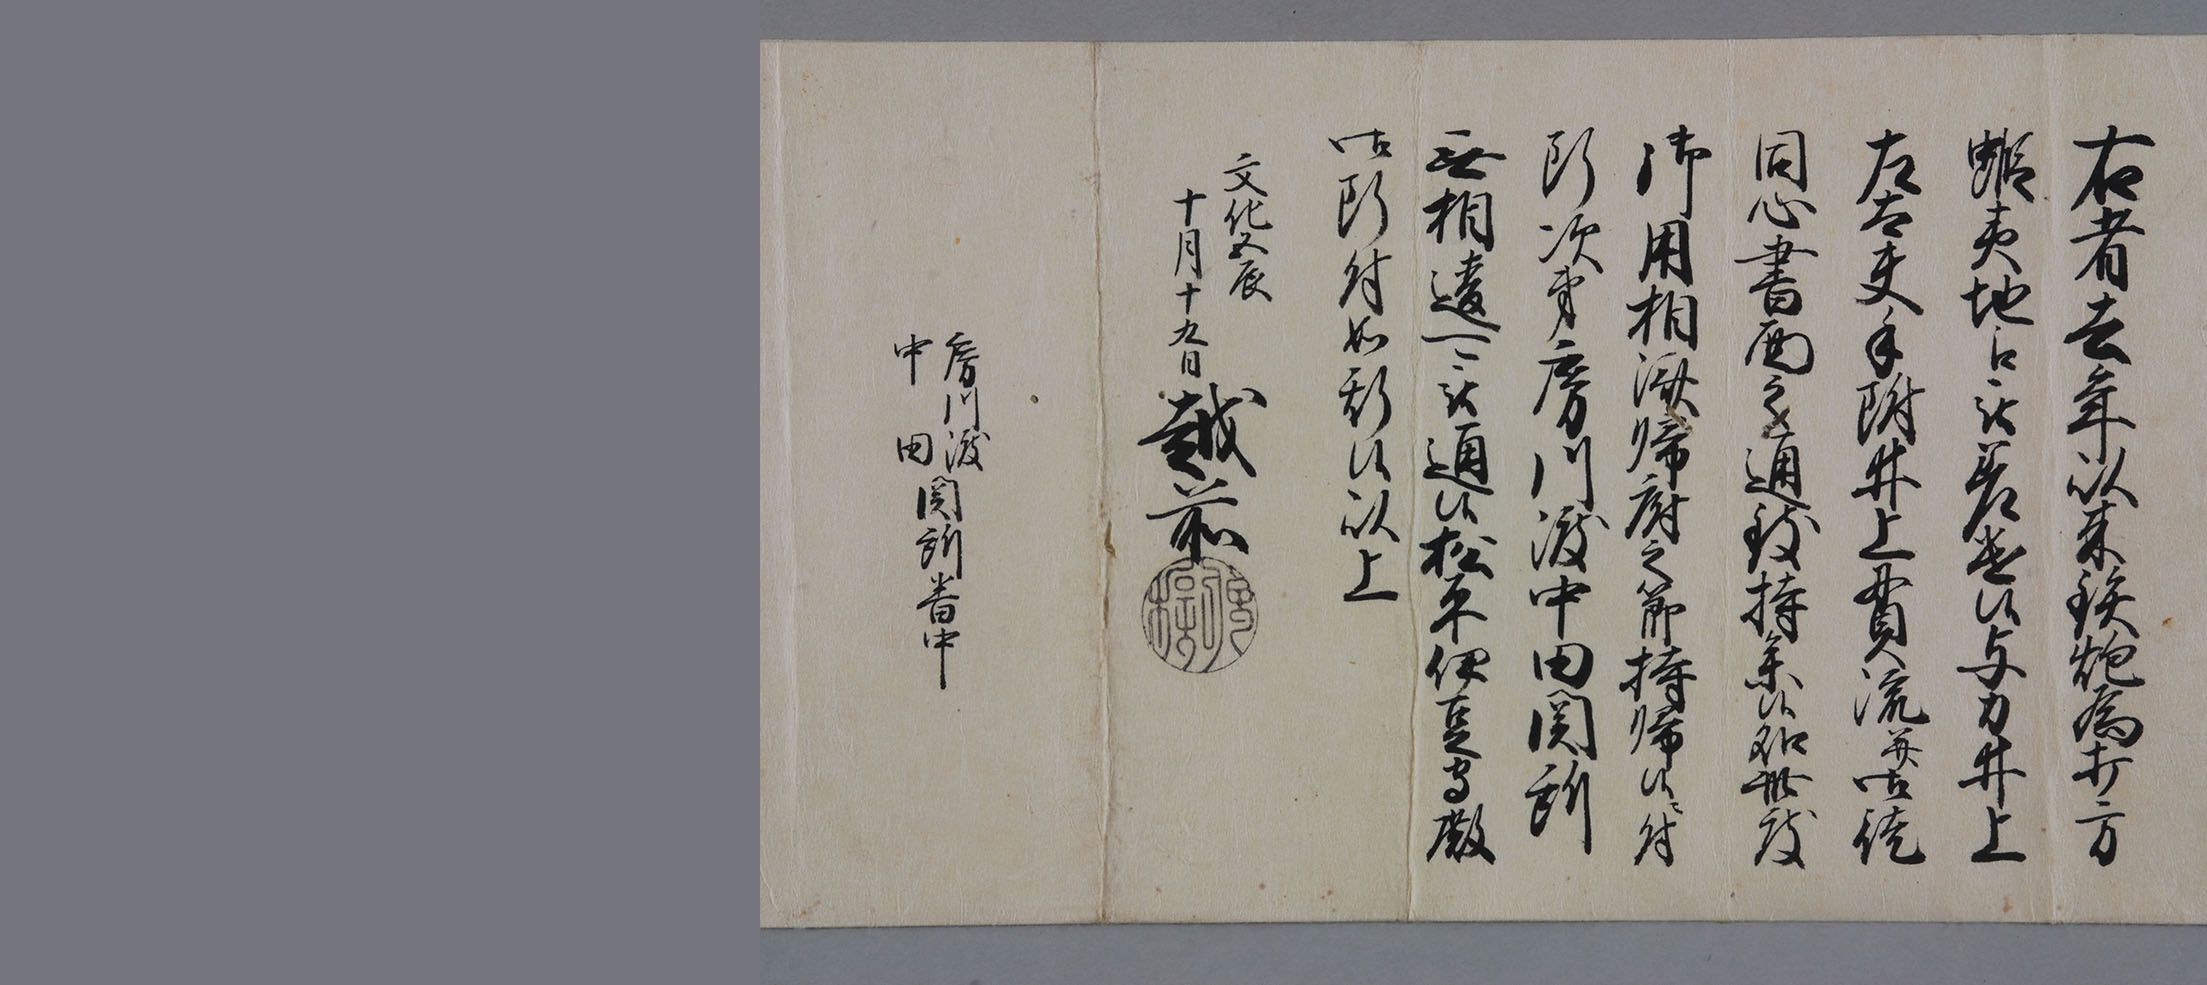 右者去年以来鉄炮為打方
蝦夷地江被差遣候与力井上
左太夫手附井上貫流并御徒
同心書面之通鉄持参候処無程
御用相済帰府之節持帰候付
所次第房川渡中田関所
無相違可被通候松平伊豆守殿
御断付如斯候以上
文化五辰
十月十九日
越前
房川渡
中田
関所番中